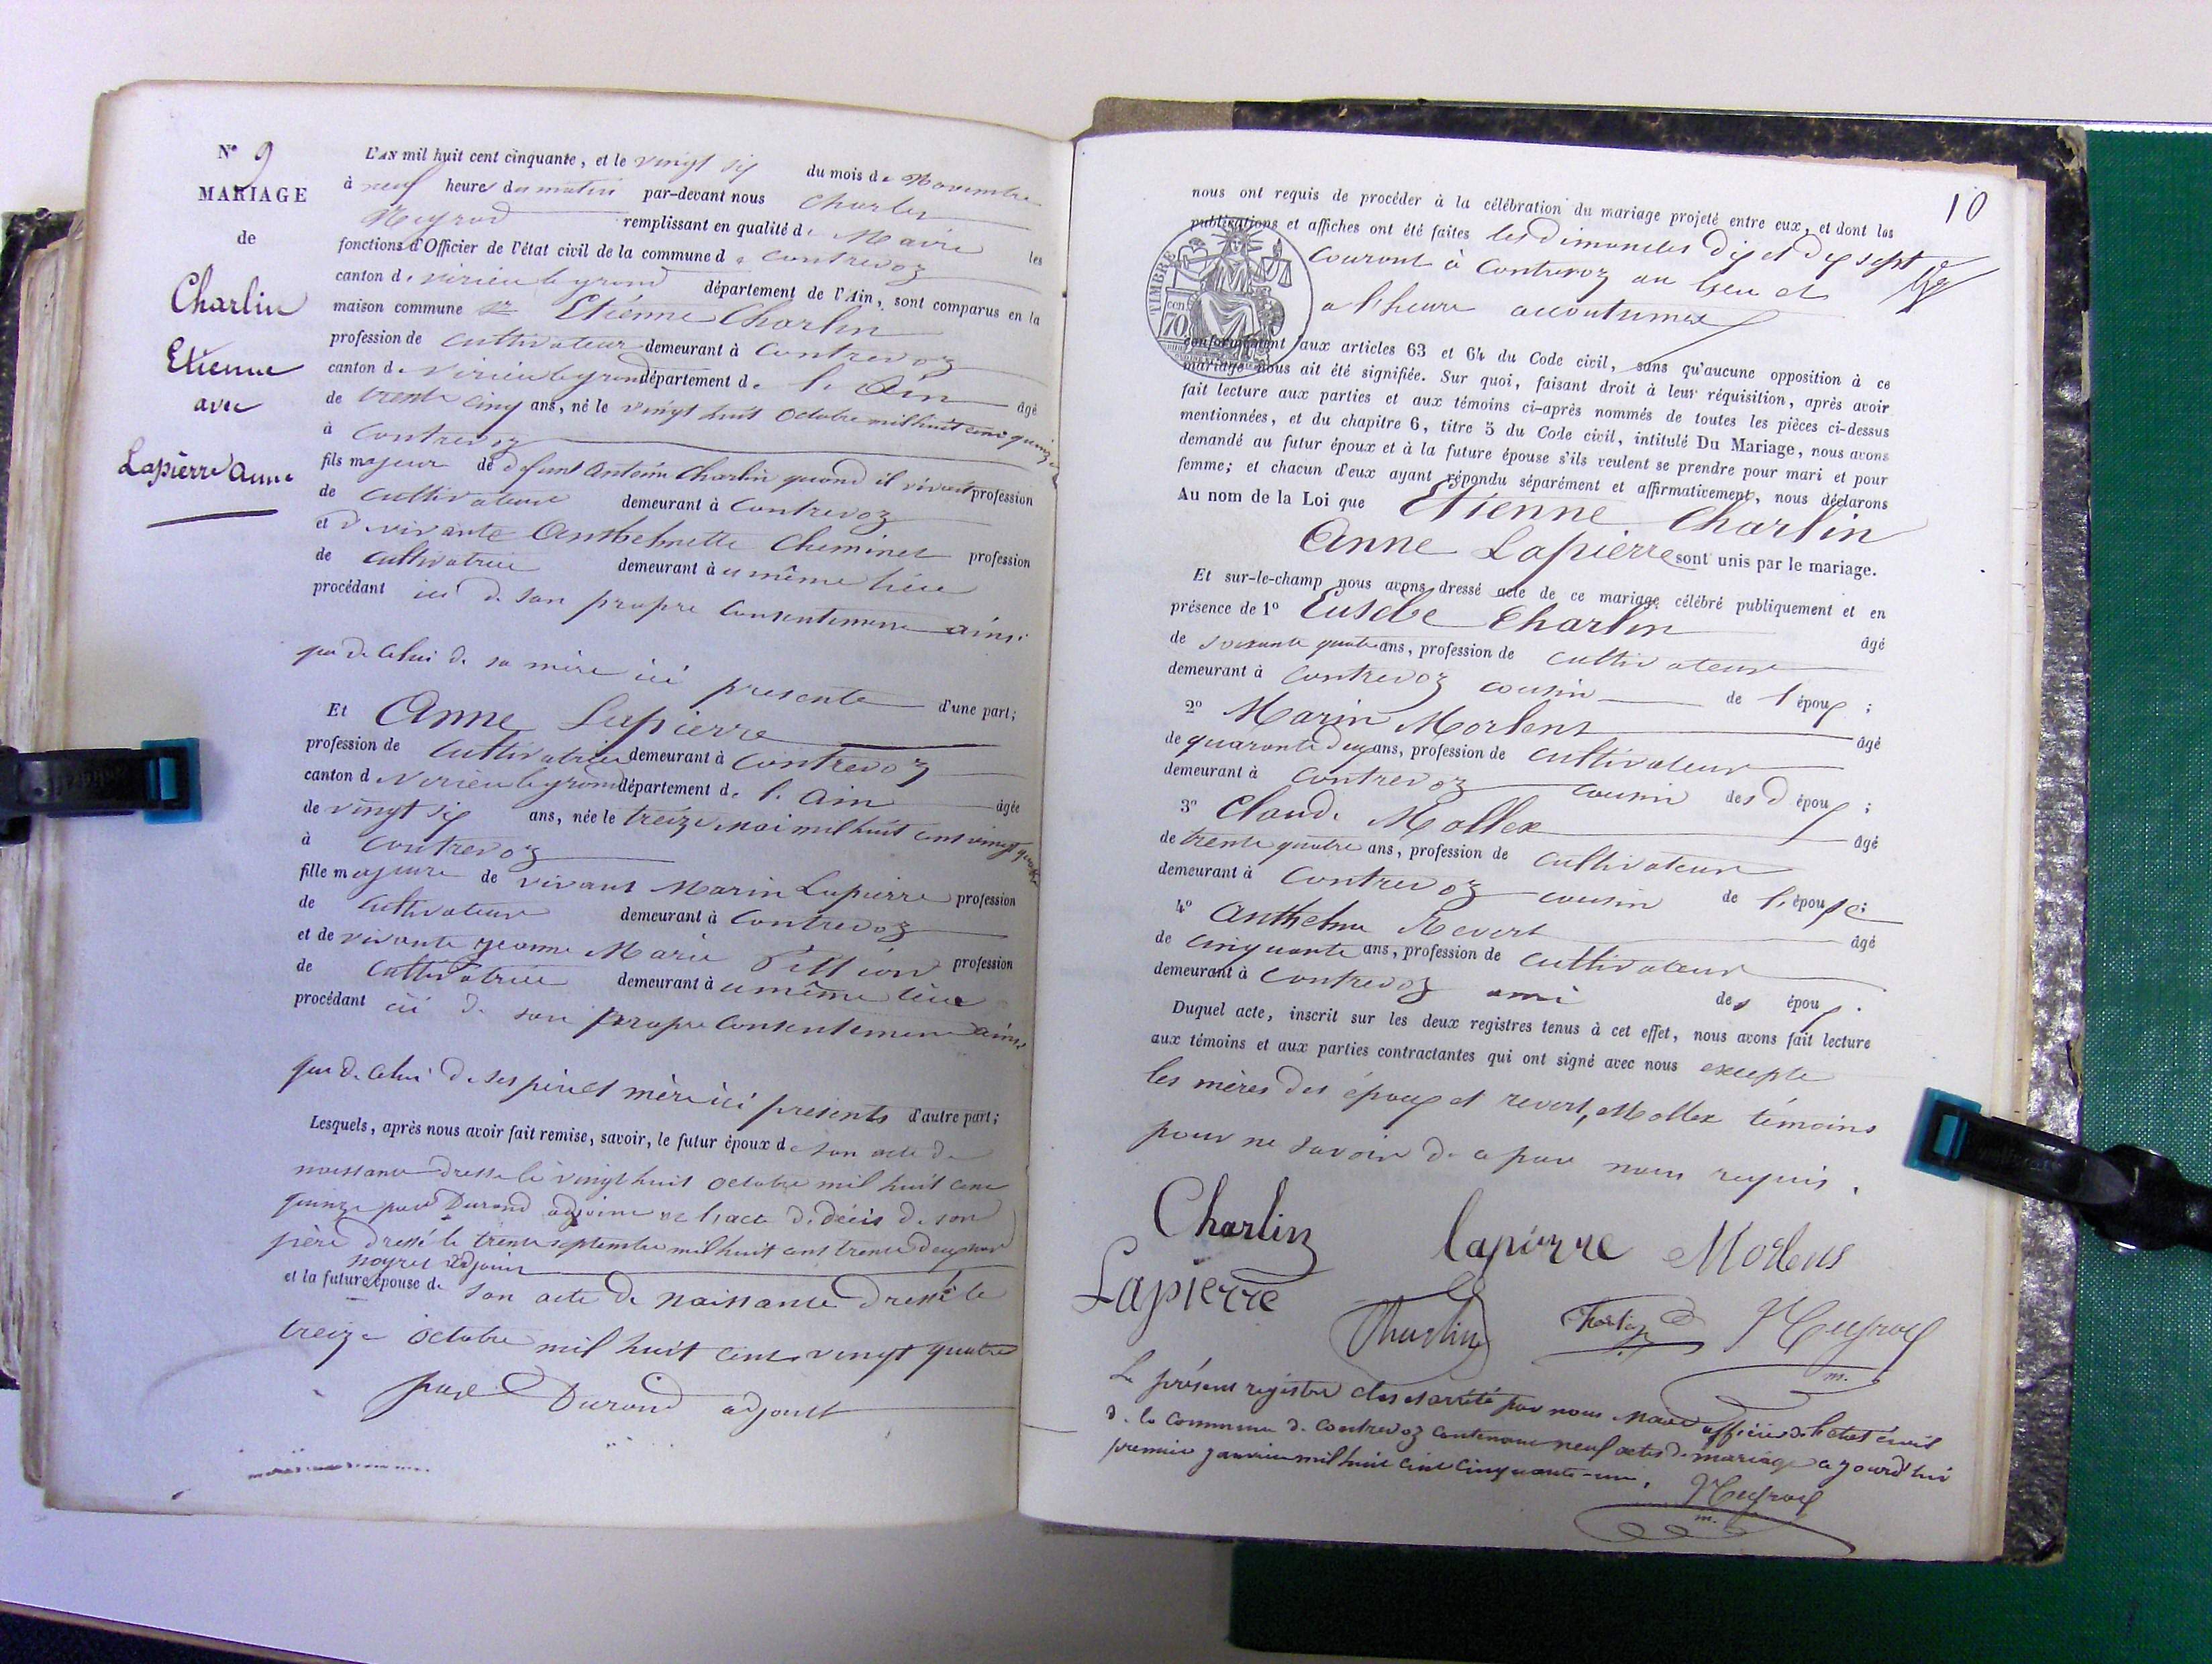 N° 9
MARIAGE
de
Charlin
Etienne
avec
Lapierre Anne
L'AN mil huit cent cinquante, et le vingt six du mois de Novembre
à neuf heures du matin par-devant nous Charles
Neyrod remplissant en qualité de Maire les
fonctions d'Officier de l'état civil de la commune de Contrevoz
canton de virieu le grand département de l'Ain, sont comparus en la
maison commune Etiénne Charlin
profession de cultivateur demeurant à Contrevoz
canton de Virieu le grand département de l'Ain âgé
de trente cinq ans, né le vingt huit Octobre mil huit cent quinze
à Contrevoz
fils majeur de défunt Antoine Charlin quand il vivait profession
de cultivateur demeurant à Contrevoz
et de vivante Anthelmette Cheminet profession
de cultivatrice demeurant à u même lieu
procédant ici de son propre consentement ainsi
que de celui de sa mère ici presente d'une part;
Et Anne Lapierre
profession de cultivatrice demeurant à Contrevoz
canton de Virieu le grand département de l'Ain âgée
de vingt six ans, née le treize mai mil huit cent vingt quatre
à Contrevoz
fille majeure de vivant Marin Lapierre profession
de cultivateur demeurant à Contrevoz
et de vivante jeanne Marie profession
de cultivatrice demeurant à u même lieu
procédant ici de son propre consentement ainsi
que de celui de ses père et mère ici présents d'autre part;
Lesquels, après nous avoir fait remise, savoir, le futur époux de son acte de
naissance dressé le vingt huit octobre mil huit cent
quinze par Durand adjoint et l'acte de décès de son
père dressé le trente septembre mil huit cent trente deux par
adjoint
et la future épouse de son acte de naissance dressé le
treize octobre mil huit cent vingt quatre
par Durand adjoint
10
nous ont requis de procéder à la célébration du mariage projeté entre eux, et dont les
publications et affiches ont été faites les dimanches dix et dix sept
courant à Contrevoz au lieu et
a l'heure accoutumés
TIMBRE
70
conformément aux articles 63 et 64 du Code civil, sans qu'aucune opposition à ce
mariage nous ait été signifiée. Sur quoi, faisant droit à leur réquisition, après avoir
fait lecture aux parties et aux témoins ci-après nommés de toutes les pièces ci-dessus
mentionnées, et du chapitre 6, titre 5 du Code civil, intitulé Du Mariage, nous avons
demandé au futur époux et à la future épouse s'ils veulent se prendre pour mari et pour
femme; et chacun d'eux ayant répondu séparément et affirmativement, nous déclarons
Au nom de la Loi que Etienne Charlin
Anne Lapierre sont unis par le mariage.
Et sur-le-champ nous avons dressé acte de ce mariage célébré publiquement et en
présence de 1° Eusebe Charlin âgé
de soixante quatre ans, profession de cultivateur
demeurant à Contrevoz cousin de l'époux;
2° Marin Morlens âgé
de quarante deux ans, profession de cultivateur
demeurant à Contrevoz cousin des d époux;
3° Claude Mollex âgé
de trente quatre ans, profession de cultivateur
demeurant à Contrevoz cousin de l'épouse;
4° Anthelme Revert âgé
de cinquante ans, profession de cultivateur
demeurant à Contrevoz ami des époux.
Duquel acte, inscrit sur les deux registres tenus à cet effet, nous avons fait lecture
aux témoins et aux parties contractantes qui ont signé avec nous excepte
les mères des époux et revert, Mollex témoins
pour ne savoir de ce par nous requis.
Charlin lapierre Morlens
Lapierre Charlin Charlin Neyrod
m.
Le présent registre clos et arrêté par nous Maire officier de l'etat civil
de la commune de Contrevoz contenant neuf actes de mariage aujourd'hui
premier janvier mil huit cent cinquante-un.
Neyrod
m.